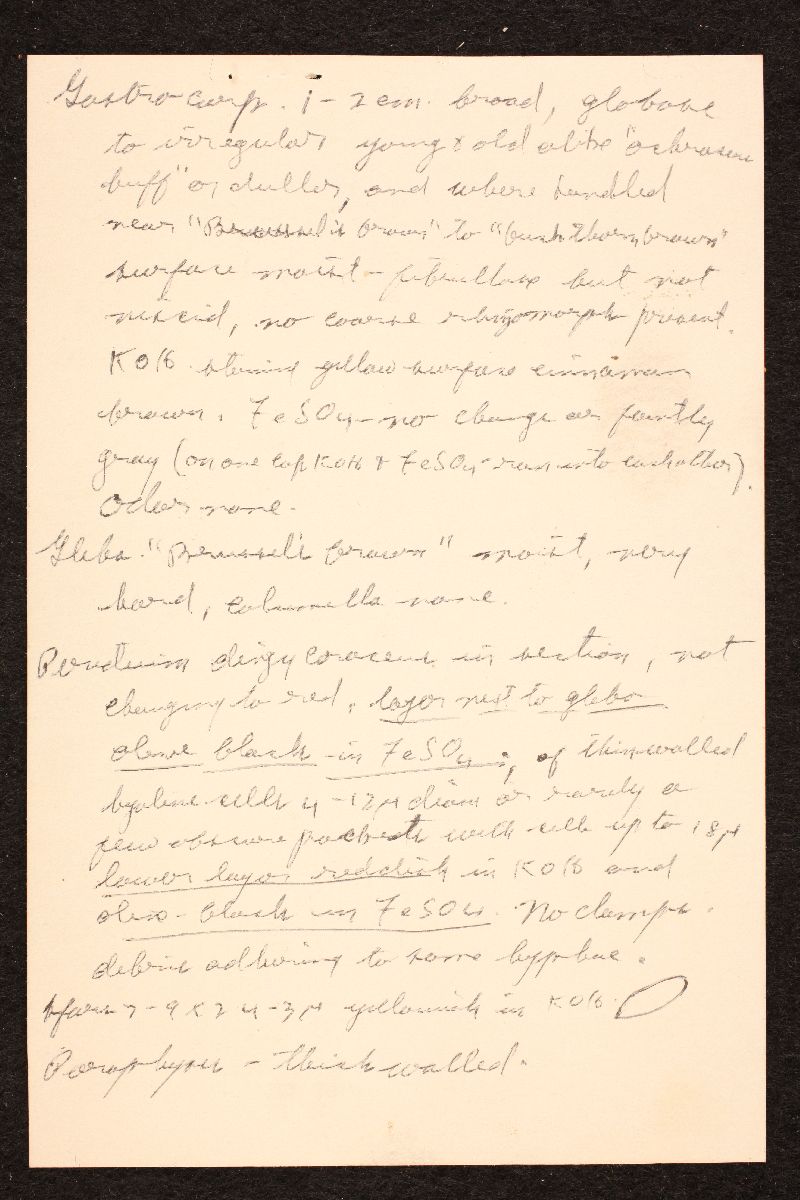 Gastrocarp. 1-2 cm. broad, globose
to irregular, young & old alike "ochraceous
buff" or duller, and where handled
near "Brussels brown" to "buckthorn brown"
surface moist-fibrillose but not
viscid, no coarse rhizomorph present.
KOH staining yellow surface cinnamon
brown. FeSO4 - no change or faintly
gray (on one cap KOH & FeSO4 ran into each other).
Odor none.
Gleba. "Brussels brown" moist, very
hard, columella none.
Peridium dingy in section, not
changing to red, layer next to gleba
olive black in FeSO4; of thin walled
hyaline cells 4-12 µ diam or rarely a
few obscure pockets with cells up to 18 µ
lower layer reddish in KOH and
olive-black in FeSO4. No clamps.
debris adhering to some hyphae.
Spores 7-9 x 2.4-3 µ yellowish in KOH.
Paraphyses - thick walled.